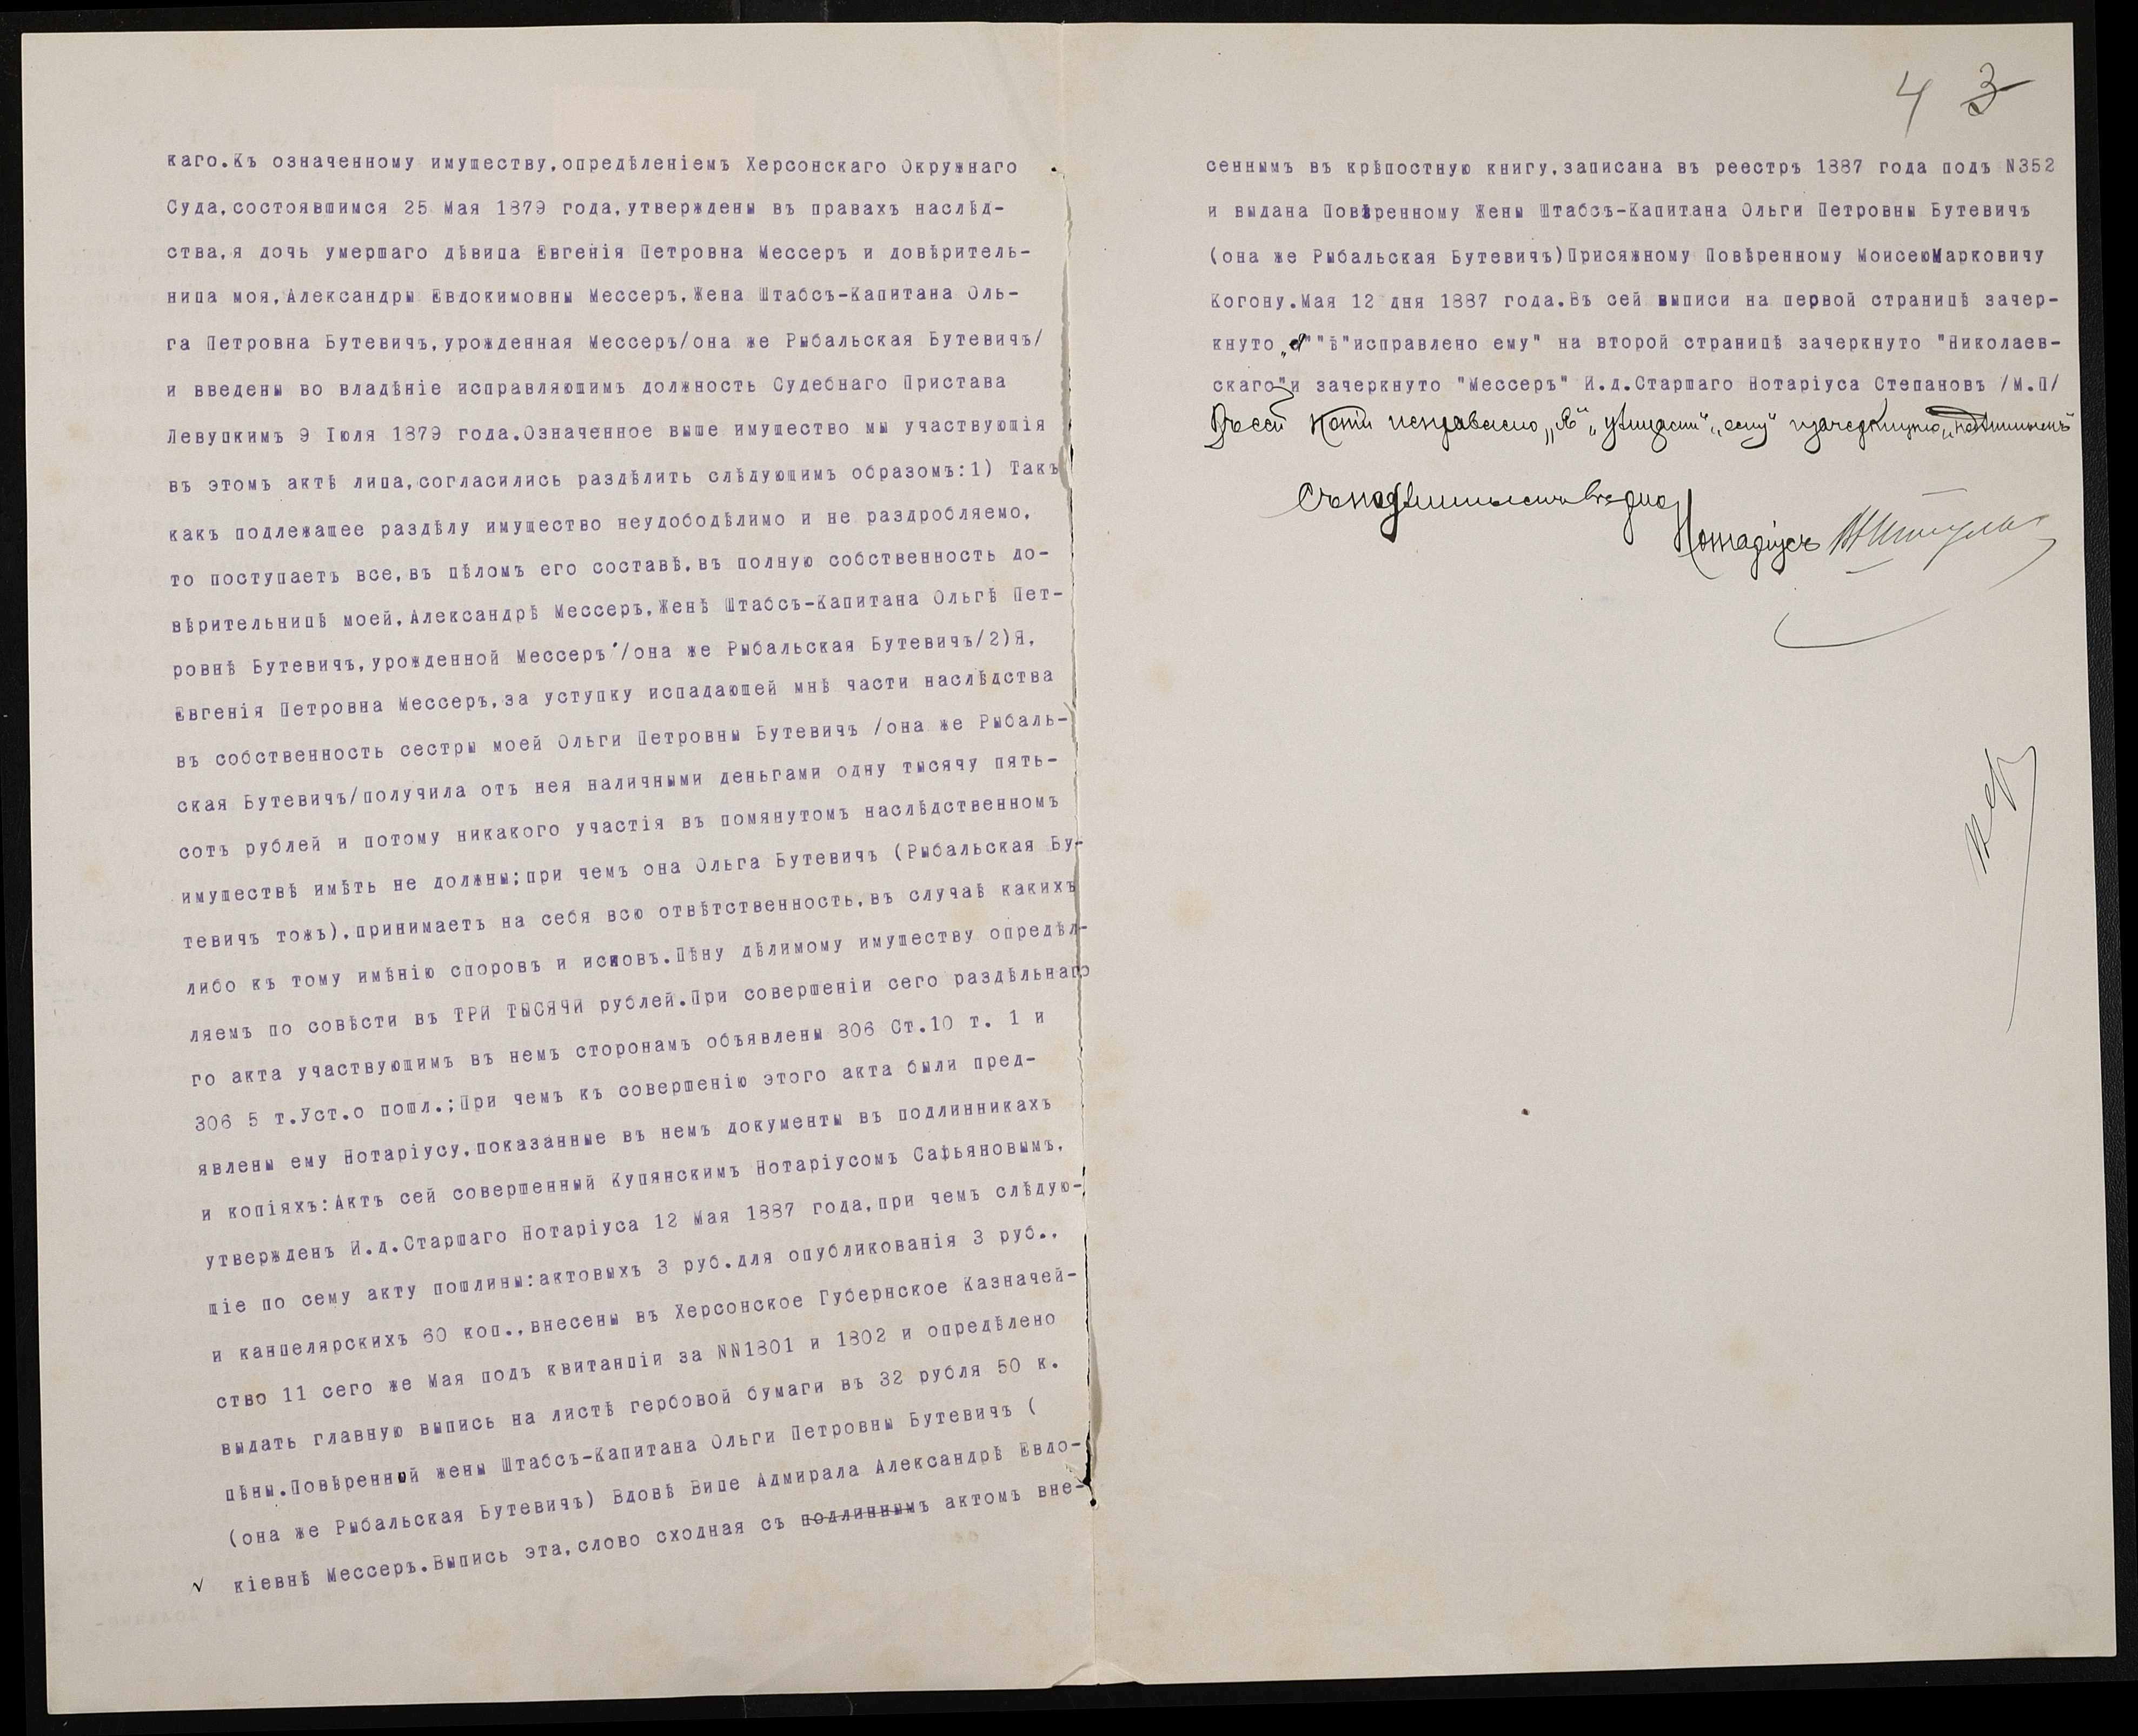 каго.Къ означенному имуществу,опредѣленіемъ Херсонскаго Окружнаго
Суда,состоявшимся 25 Мая 1879 года,утверждены въ правахъ наслѣд-
ства,я дочь умершаго дѣвица Евгенія Петровна Мессеръ и довѣритель-
ница моя,Александры Евдокимовны Мессеръ,Жена Штабсъ-Капитана Оль-
га Петровна Бутевичъ,урожденная Мессеръ/она же Рыбальская Бутевичъ/
и введены во владѣніе исправляющимъ должность Судебнаго Пристава
Левуцкимъ 9 Іюля 1879 года.Означенное выше имущество мы участвующія
въ этомъ актѣ лица,согласились раздѣлить слѣдующимъ образомъ:1) Такъ
какъ подлежащее раздѣлу имущество неудободѣлимо и не раздробляемо,
то поступаетъ все,въ цѣломъ его составѣ,въ полную собственность до-
вѣрительницѣ моей,Александрѣ Мессеръ,Женѣ Штабсъ-Капитана Ольгѣ Пет-
ровнѣ Бутевичъ,урожденной Мессеръ'/она же Рыбальская Бутевичъ/2)Я,
Евгенія Петровна Мессеръ,за уступку испадающей мнѣ части наслѣдства
въ собственность сестры моей Ольги Петровны Бутевичъ /она же Рыбаль-
ская Бутевичъ/получила отъ нея наличными деньгами одну тысячу пять-
сотъ рублей и потому никакого участія въ помянутомъ наслѣдственномъ
имуществѣ имѣть не должны;при чемъ она Ольга Бутевичъ (Рыбальская Бу-
тевичъ тожъ),принимаетъ на себя всю отвѣтственность,въ случаѣ какихъ
либо къ тому имѣнію споровъ и исковъ.Цѣну дѣлимому имуществу опредѣл-
ляемъ по совѣсти въ ТРИ ТЫСЯЧИ рублей.При совершеніи сего раздѣльнаго
го акта участвующимъ въ немъ сторонамъ объявлены 806 Ст.10 т. 1 и
306 5 т.Уст.о пошл.;При чемъ къ совершенію этого акта были пред-
явлены ему Нотаріусу,показанные въ немъ документы въ подлинникахъ
и копіяхъ:Актъ сей совершенный Купянскимъ Нотаріусомъ Сафьяновымъ,
утвержденъ И.д.Старшаго Нотаріуса 12 Мая 1887 года,при чемъ слѣдую-
щіе по сему акту пошлины:актовыхъ 3 руб.для опубликованія 3 руб.,
и канцелярскихъ 60 коп.,внесены въ Херсонское Губернское Казначей-
ство 11 сего же Мая подъ квитанціи за NN1801 и 1802 и опредѣлено
выдать главную выпись на листѣ гербовой бумаги въ 32 рубля 50 к.
цѣны.Повѣренной жены Штабсъ-Капитана Ольги Петровны Бутевичъ (
(она же Рыбальская Бутевичъ) Вдовѣ Вице Адмирала Александрѣ Евдо-
√ кіевнѣ Мессеръ.Выпись эта,слово сходная съ подлиннымъ актомъ вне-
4 3
сеннымъ въ крѣпостную книгу,записана въ реестръ 1887 года подъ N352
и выдана Повѣренному Жены Штабсъ-Капитана Ольги Петровны Бутевичъ
(она же Рыбальская Бутевичъ)Присяжному Повѣренному МоисеюМарковичу
Когону.Мая 12 дня 1887 года.Въ сей выписи на первой страницѣ зачер-
кнуто „я""ѣ"исправлено ему" на второй страницѣ зачеркнуто "Николаев-
скаго"и зачеркнуто "Мессеръ" И.д.Старшаго Нотаріуса Степановъ /М.П/
Въ сей копіи исправлено „ему" зачеркнуто „подлиннымъ"
Съ подлиннымъ вѣрно
Нотаріусъ